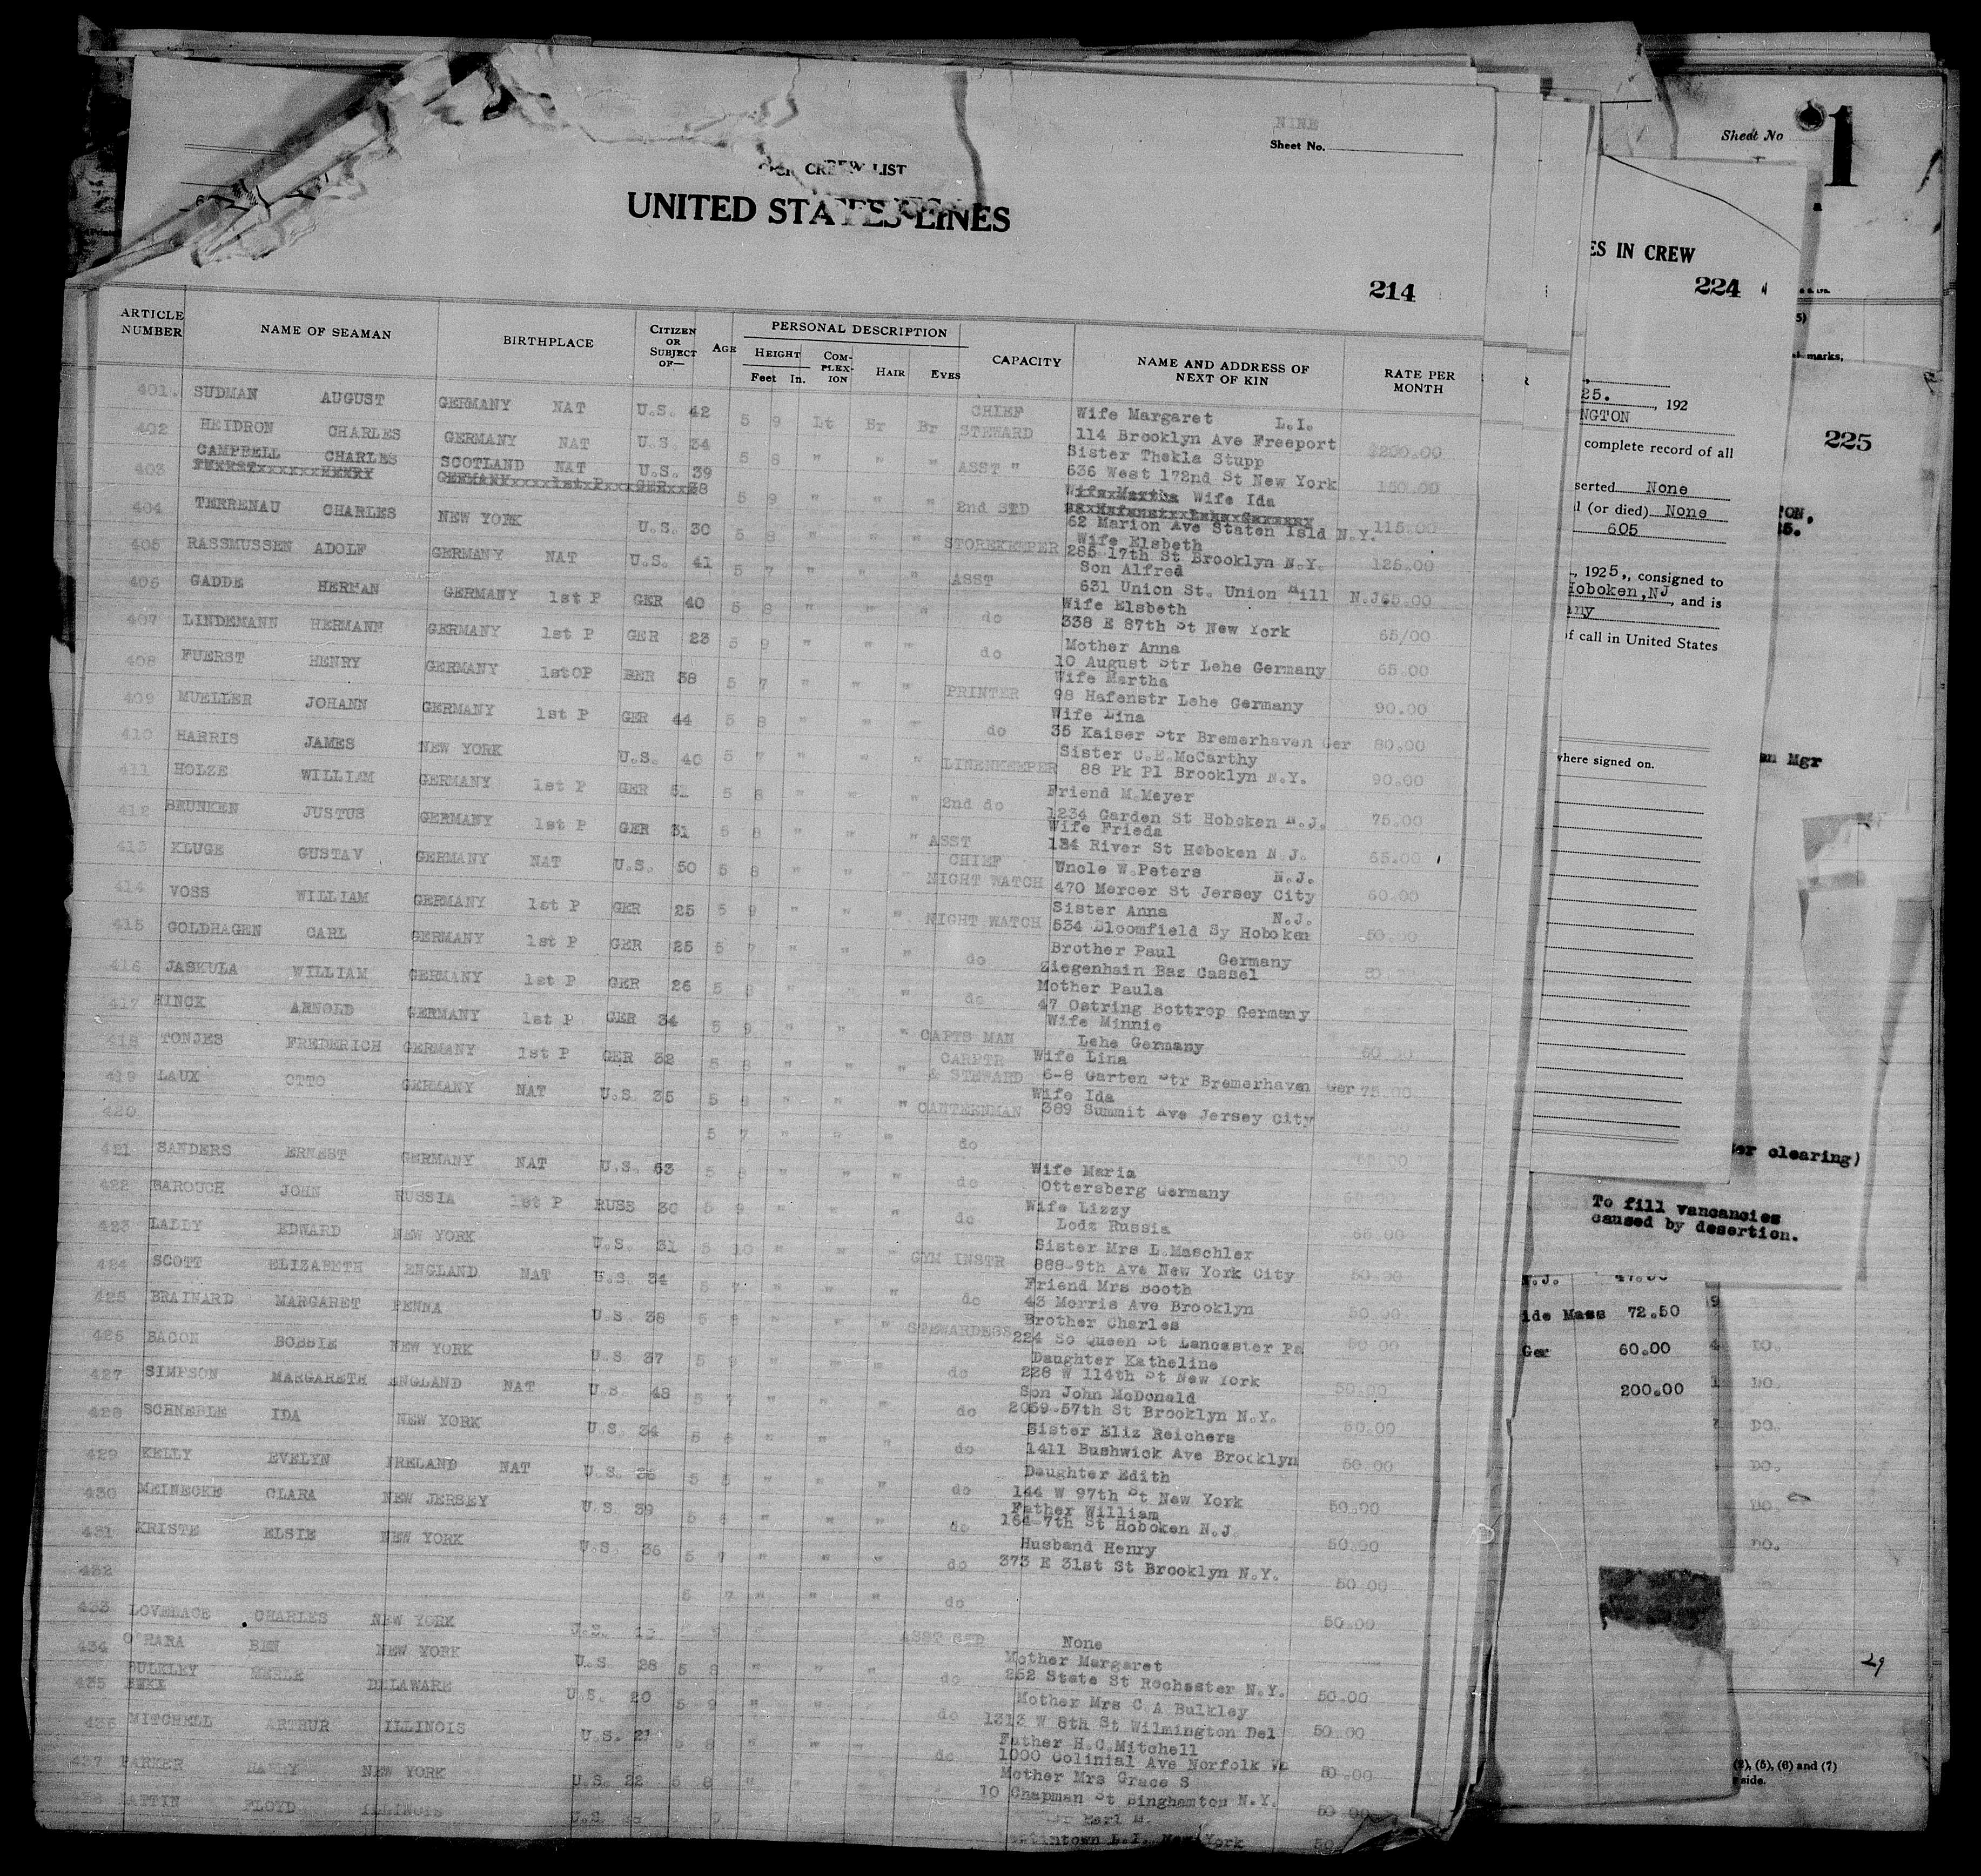 NINE
Sheet No.
CREW LIST
UNITED STATES LINES
214
ARTICLE NUMBER NAME OF SEAMAN BIRTHPLACE CITIZEN OR SUBJECT OF— AGE PERSONAL DESCRIPTION CAPACITY NAME AND ADDRESS OF NEXT OF KIN RATE PER MONTH
HEIGHT COM-PLEX-ION HAIR EYES
Feet In.
401. SUDMAN AUGUST GERMANY NAT U.S. 42 5 9 Lt Br Br CHIEF STEWARD Wife Margaret L.I.
114 Brooklyn Ave Freeport $200.00
402 HEIDRON CHARLES GERMANY NAT U.S. 34 5 8 " " " ASST " Sister Thekla Stupp
636 West 172nd St New York 150.00
CAMPBELL CHARLES SCOTLAND NAT U.S. 39
403 FUERSTxxxxxxHENRY GERMANYxxxx1stxPxxxGERxx38 5 9 " " " 2nd STD WifexMartha Wife Ida
62 Marion Ave Staten Isld N.Y. 115.00
404 TERRENAU CHARLES NEW YORK U.S. 30 5 8 " " " STOREKEEPER Wife Elsbeth
285 17th St Brooklyn N.Y. 125.00
405 RASSMUSSEN ADOLF GERMANY NAT U.S. 41 5 7 " " " ASST Son Alfred
631 Union St. Union Hill N.J. 65.00
406 GADDE HERMAN GERMANY 1st P GER 40 5 8 " " " do Wife Elsbeth
338 E 87th St New York 65/00
407 LINDEMANN HERMANN GERMANY 1st P GER 23 5 9 " " " do Mother Anna
10 August Str Lehe Germany 65.00
408 FUERST HENRY GERMANY 1stOP GER 38 5 7 " " " PRINTER Wife Martha
98 Hafenstr Lehe Germany 90.00
409 MUELLER JOHANN GERMANY 1st P GER 44 5 8 " " " do Wife Lina
35 Kaiser Str Bremerhaven Ger 80.00
410 HARRIS JAMES NEW YORK U.S. 40 5 7 " " " LINENKEEPER Sister C.E.McCarthy
88 Pk Pl Brooklyn N.Y. 90.00
411 HOLZE WILLIAM GERMANY 1st P GER 51 5 8 " " " 2nd do Friend M.Meyer
1234 Garden St Hoboken N.J. 75.00
412 BRUNKEN JUSTUS GERMANY 1st P GER 31 5 8 " " " ASST Wife Frieda
134 River St Hoboken N.J. 65.00
413 KLUGE GUSTAV GERMANY NAT U.S. 50 5 8 " " " CHIEF NIGHT WATCH Uncle W.Peters N.J.
470 Mercer St Jersey City 60.00
414 VOSS WILLIAM GERMANY 1st P GER 25 5 9 " " " NIGHT WATCH Sister Anna N.J.
534 Bloomfield Sy Hoboken 50.00
415 GOLDHAGEN CARL GERMANY 1st P GER 25 5 7 " " " do Brother Paul Germany
Ziegenhain Baz Cassel
416 JASKULA WILLIAM GERMANY 1st P GER 26 5 8 " " " do Mother Paula
47 Ostring Bottrop Germany
417 HINCK ARNOLD GERMANY 1st P GER 34 5 9 " " " CAPTS MAN Wife Minnie
Lehe Germany
418 TONJES FREDERICH GERMANY 1st P GER 32 5 8 " " " CARPTR & STEWARD Wife Lina
6-8 Garten Str Bremerhaven Ger 75.00
419 LAUX OTTO GERMANY NAT U.S. 35 5 8 " " " CANTEENMAN Wife Ida
389 Summit Ave Jersey City
420 5 7 " " " do 65.00
421 SANDERS ERNEST GERMANY NAT U.S. 53 5 8 " " " do Wife Maria
Ottersberg Germany 65.00
422 BAROUCH JOHN RUSSIA 1st P RUSS 30 5 9 " " " do Wife Lizzy
Lodz Russia 65.00
423 LALLY EDWARD NEW YORK U.S. 31 5 10 " " " GYM INSTR Sister Mrs L.Maschler
888-9th Ave New York City 50.00
424 SCOTT ELIZABETH ENGLAND NAT U.S. 34 5 7 " " " do Friend Mrs Booth
43 Morris Ave Brooklyn 50.00
425 BRAINARD MARGARET PENNA U.S. 38 5 8 " " " STEWARDESS Brother Charles
224 So Queen St Lancaster Pa 50.00
426 BACON BOBBIE NEW YORK U.S. 37 5 9 " " " do Daughter Katheline
228 W 114th St New York 50.00
427 SIMPSON MARGARETH ENGLAND NAT U.S. 48 5 7 " " " do Son John McDonald
2059-57th St Brooklyn N.Y. 50.00
428 SCHNEBLE IDA NEW YORK U.S. 34 5 6 " " " do Sister Eliz Reichers
1411 Bushwick Ave Brooklyn 50.00
429 KELLY EVELYN IRELAND NAT U.S. 36 5 5 " " " do Daughter Edith
144 W 97th St New York 50.00
430 MEINECKE CLARA NEW JERSEY U.S. 39 5 6 " " " do Father William
164-7th St Hoboken N.J. 50.00
431 KRISTE ELSIE NEW YORK U.S. 36 5 7 " " " do Husband Henry
373 E 31st St Brooklyn N.Y. 50.00
432 5 7 " " " do 50.00
433 LOVELACE CHARLES NEW YORK U.S. ASST STD None
434 O'HARA BEN NEW YORK U.S. 28 5 8 " " " do Mother Margaret
252 State St Rochester N.Y. 50.00
BULKLEY MERLE
435 DELAWARE U.S. 20 5 9 " " " do Mother Mrs C A Bulkley
1313 W 8th St Wilmington Del 50.00
436 MITCHELL ARTHUR ILLINOIS U.S. 21 5 8 " " " do Father H.C.Mitchell
1000 Colinial Ave Norfolk Va 50.00
437 PARKER HARRY NEW YORK U.S. 22 5 8 " Mother Mrs Grace S
10 Chapman St Binghamton N.Y. 50.00
FLOYD ILLINOIS U.S. Earl
L.I. New York 50
Sheet No
1
ES IN CREW
224
marks,
25. , 192
NGTON
complete record of all
225
serted None
l (or died) None
605
, 1925,, consigned to
Hoboken,NJ, and is
any
of call in United States
where signed on.
an Mgr
er clearing)
To fill vancancies
caused by desertion.
N.J. 47.50
ide Mass 72.50
Ger 60.00
200.00
DO.
DO.
DO.
DO.
DO
DO.
29
(2), (5), (6) and (7)
side.